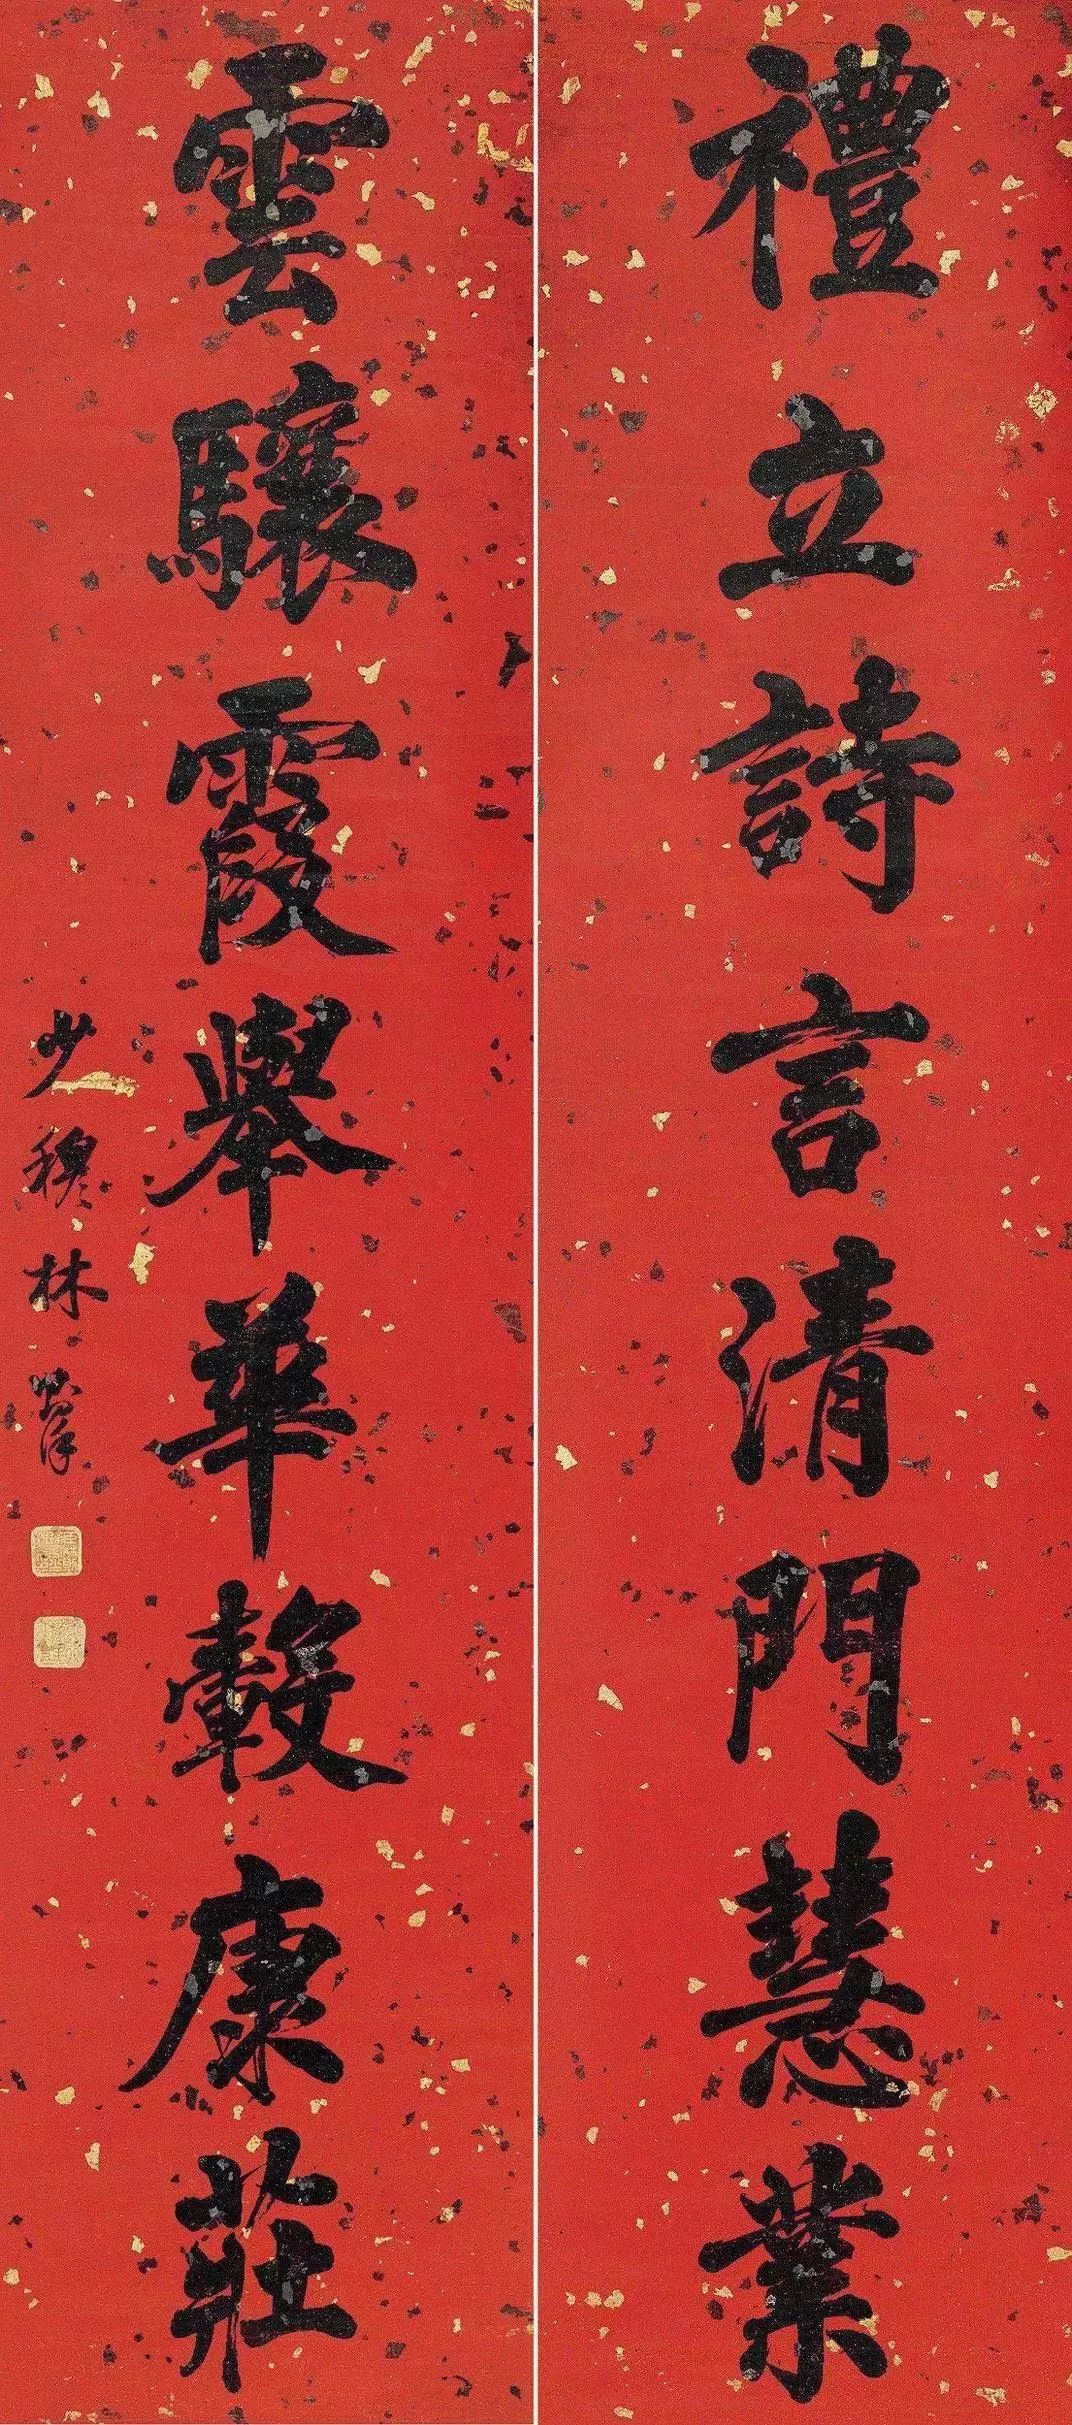 禮立詩言清門慧業
雲驤霞舉華轂康莊
少穆林